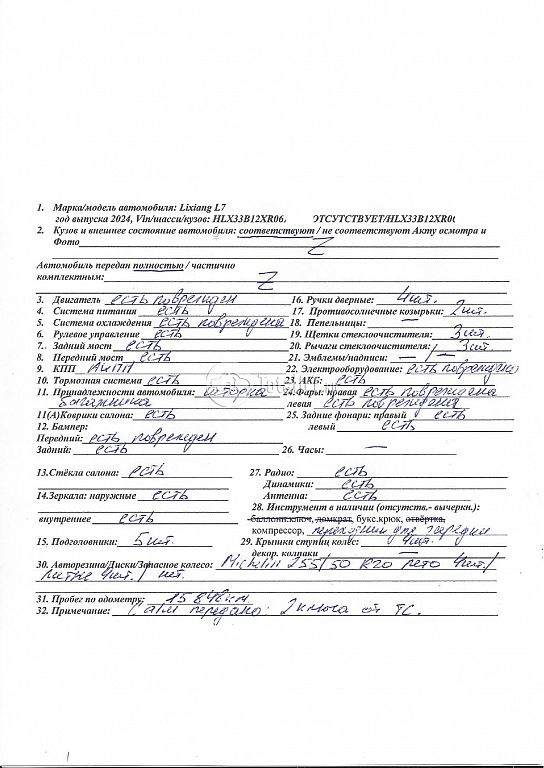 1. Марка/модель автомобиля: Lixiang L7
год выпуска 2024, Vin/шасси/кузов: HLX33B12XR06. ЭТСУТСТВУЕТ/HLX33B12XR06
2. Кузов и внешнее состояние автомобиля: соответствуют / не соответствуют Акту осмотра и
Фото Z
Автомобиль передан полностью / частично
комплектным: Z
3. Двигатель есть поврежден 16. Ручки дверные: 4шт.
4. Система питания есть 17. Противосолнечные козырьки: 2шт.
5. Система охлаждения есть повреждена 18. Пепельницы: —
6. Рулевое управление есть 19. Щетки стеклоочистителя: 3шт.
7. Задний мост есть 20. Рычаги стеклоочистителя: 3шт
8. Передний мост есть 21. Эмблемы/надписи: — / —
9. КПП АКПП 22. Электрооборудование: есть повреждено
10. Тормозная система есть 23. АКБ: есть
11. Принадлежности автомобиля: 24. Фары: правая есть повреждена
левая есть повреждена
11(А)Коврики салона: есть 25. Задние фонари: правый есть
12. Бампер: левый есть
Передний: есть поврежден
Задний: есть 26. Часы: —
13.Стёкла салона: есть 27. Радио: есть
Динамики: есть
14.Зеркала: наружные есть Антенна: есть
28. Инструмент в наличии (отсутств.- вычеркн.):
внутреннее есть баллонн.ключ, домкрат, букс.крюк, отвёртка,
компрессор,
15. Подголовники: 5шт. 29. Крышки ступиц колёс: 4шт.
декор. колпаки —
30. Авторезина/Диски/Запасное колесо: Michelin 255/50 R20 лето 4шт/
литые 4шт. / нет.
31. Пробег по одометру: 15846км.
32. Примечание: передано: 2 ключа от ТС.